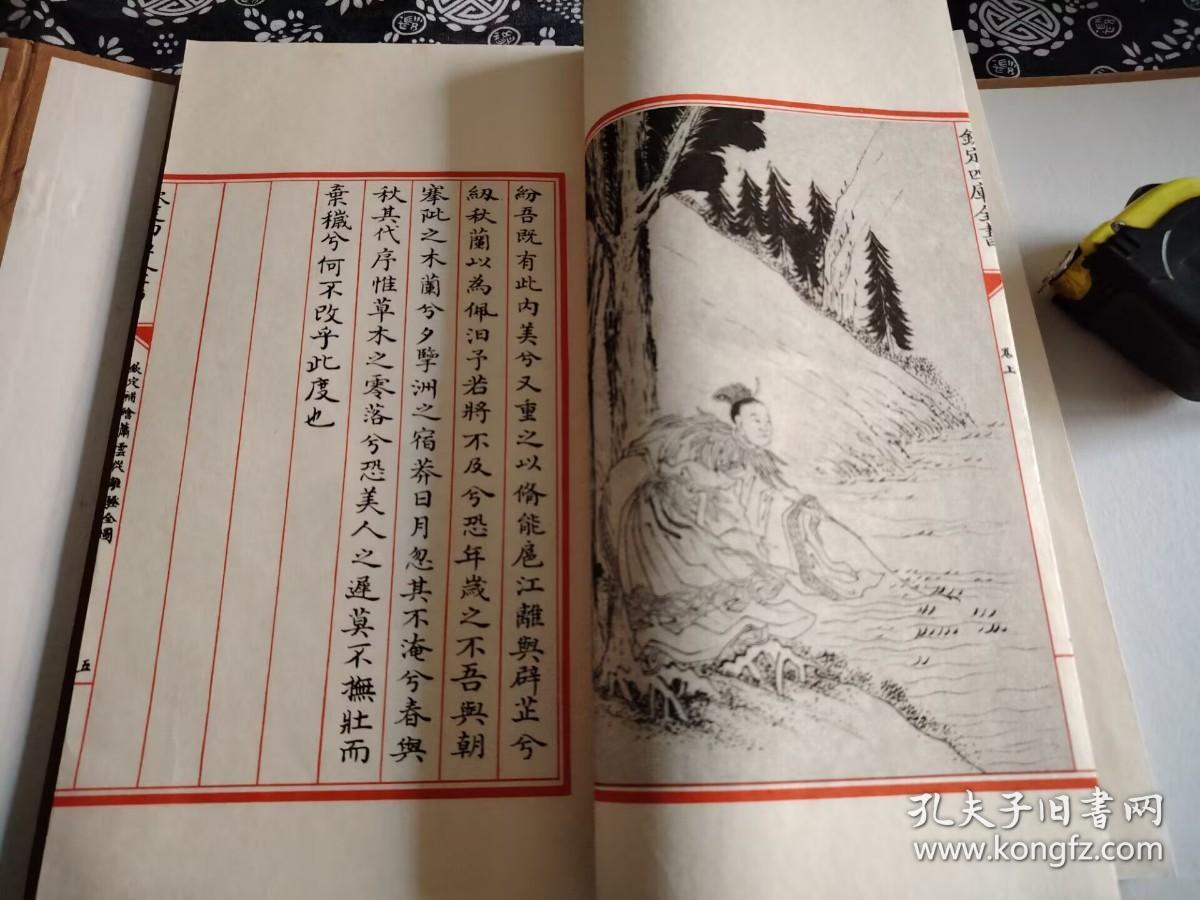 欽定四庫全書
卷上
紛吾既有此内美兮又重之以脩能扈江離與辟芷兮
紉秋蘭以為佩汨予若將不及兮恐年歲之不吾與朝
搴阰之木蘭兮夕擥洲之宿莽日月忽其不淹兮春與
秋其代序惟草木之零落兮恐美人之遲莫不撫壯而
棄穢兮何不改乎此度也
欽定補繪蕭雲從離騷全圖
五
孔夫子旧书网
www.kongfz.com